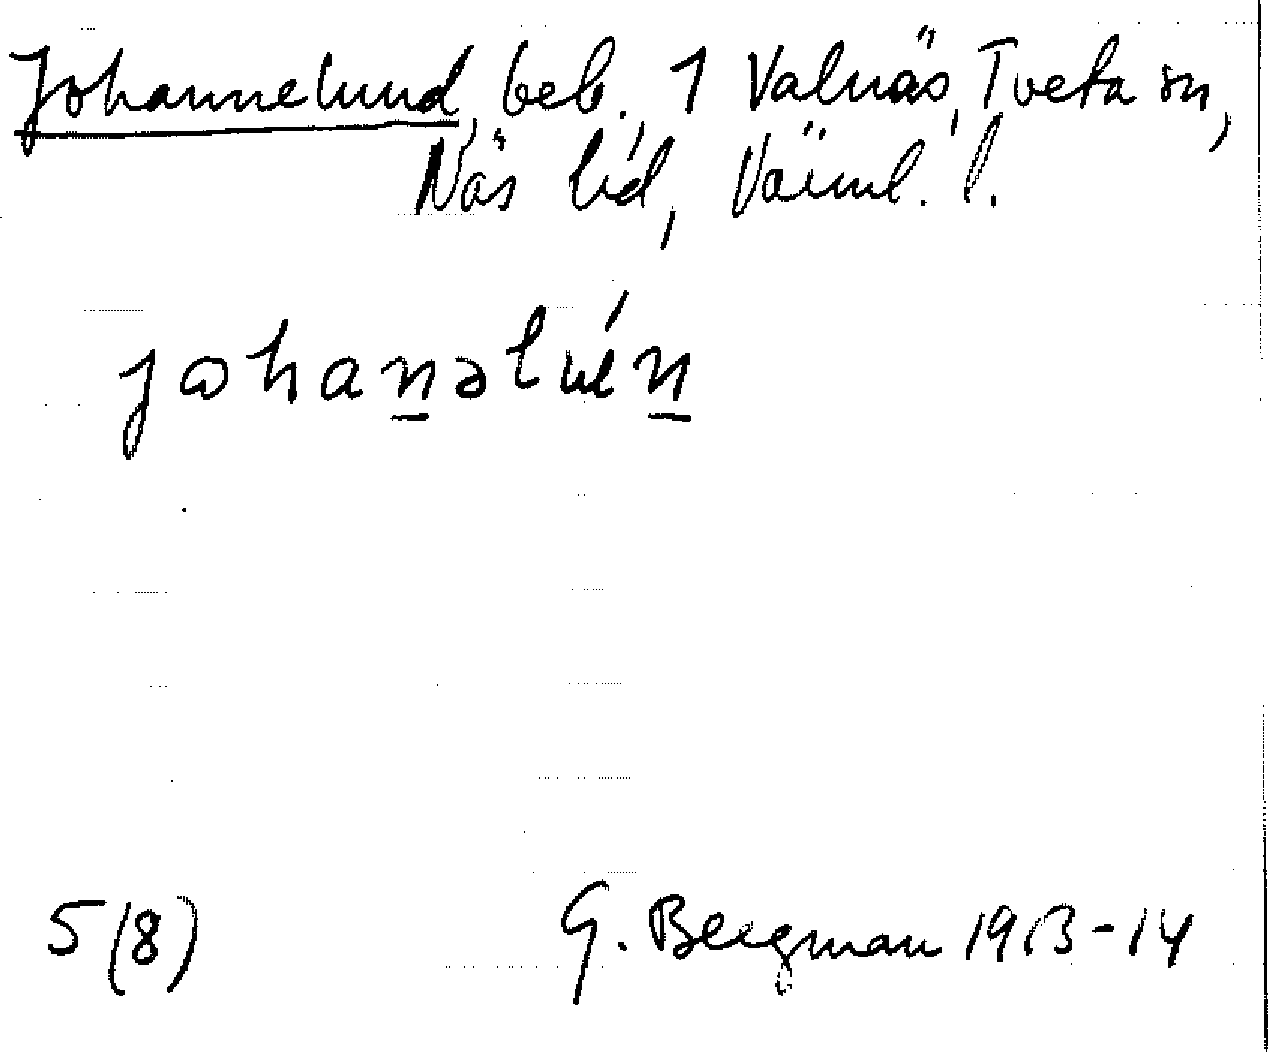 Johannelund, beb. 1 Valnäs, Tveta sn,
Näs hd, Värml. l.
johan̲əlún̲
5(8) G. Bergman 1913-14